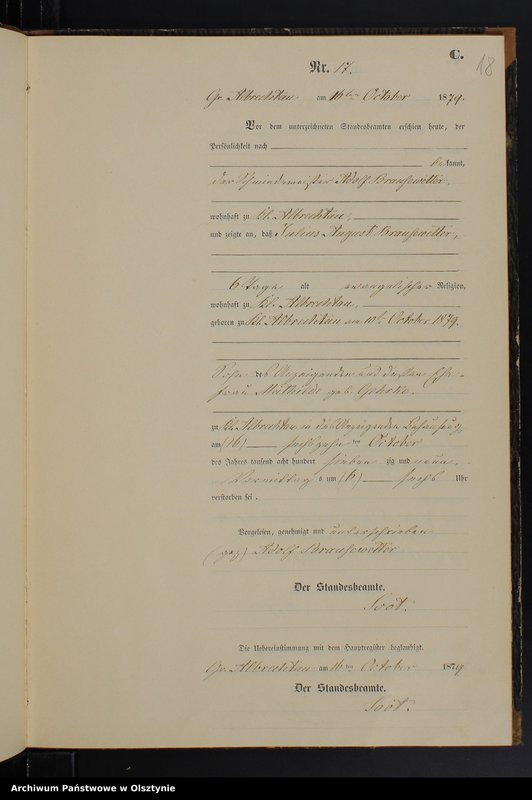 C.
18
Nr. 17.
Gr. Albrechtau am 16ten October 1879.
Vor dem unterzeichneten Standesbeamten erschien heute, der
Persönlichkeit nach
bekannt,
der Schmiedemeister Adolf Brausewetter,
wohnhaft zu Kl. Albrechtau,
und zeigte an, daß Julius August Brausewetter,
6 Tage alt evangelischer Religion,
wohnhaft zu Kl. Albrechtau,
geboren zu Kl. Albrechtau am 10t. October 1879.
Sohn des Anzeigenden und dessen Ehe-
frau Mathilde geb. Gehrke.
zu Kl. Albrechtau in des Anzeigenden Behausung,
am (16) sechszehn ten October
des Jahres tausend acht hundert sieben zig und neun,
Vormittags um (6) sechs Uhr
verstorben sei.
Vorgelesen, genehmigt und unterschrieben
(gez) Adolf Brausewetter
Der Standesbeamte.
Die Uebereinstimmung mit dem Hauptregister beglaubigt.
Gr. Albrechtau am 16ten October 1879
Der Standesbeamte.
Archiwum Państwowe w Olsztynie